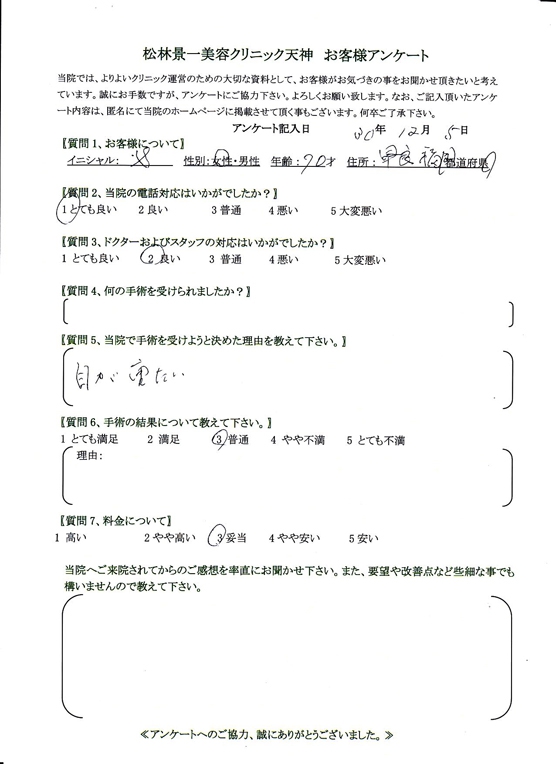 松林景一美容クリニック天神 お客様アンケート
当院では、よりよいクリニック運営のための大切な資料として、お客様がお気づきの事をお聞かせ頂きたいと考え
ています。誠にお手数ですが、アンケートにご協力下さい。よろしくお願い致します。なお、ご記入頂いたアンケ
ート内容は、匿名にて当院のホームページに掲載させて頂く事もございます。何卒ご了承下さい。
アンケート記入日 30年 12月 5日
〖質問1、お客様について〗
イニシャル: 性別:女性・男性 年齢:70才 住所: 福岡 都道府県
〖質問2、当院の電話対応はいかがでしたか?〗
1とても良い 2良い 3普通 4悪い 5大変悪い
〖質問3、ドクターおよびスタッフの対応はいかがでしたか?〗
1とても良い 2良い 3普通 4悪い 5大変悪い
〖質問4、何の手術を受けられましたか?〗
〖質問5、当院で手術を受けようと決めた理由を教えて下さい。〗
目が重たい
〖質問6、手術の結果について教えて下さい。〗
1とても満足 2満足 3普通 4やや不満 5とても不満
理由:
〖質問7、料金について〗
1高い 2やや高い 3妥当 4やや安い 5安い
当院へご来院されてからのご感想を率直にお聞かせ下さい。また、要望や改善点など些細な事でも
構いませんので教えて下さい。
≪アンケートへのご協力、誠にありがとうございました。≫